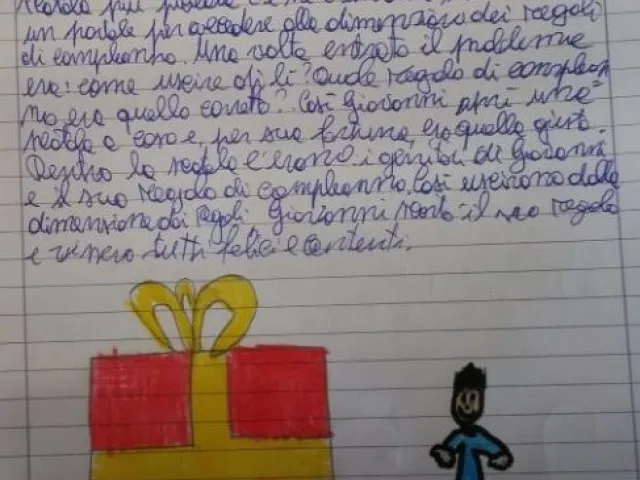 scatola più
un portale per accedere alla dimensione dei regali
di compleanno. Una volta entrato il problema
era: come uscire di lì? Quale regalo di complean
no era quello corretto? Così Giovanni aprì una
scatola a caso e, per sua fortuna, era quella giusta.
Dentro la scatola c'erano i genitori di Giovanni
e il suo regalo di compleanno. Così uscirono dalla
dimensione dei regali. Giovanni scartò il suo regalo
e vissero tutti felici e contenti.